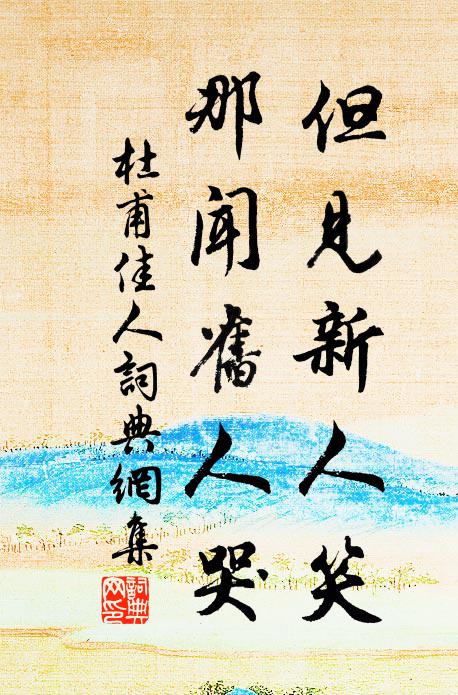 但見新人笑
那聞舊人哭
杜甫佳人詞典網集